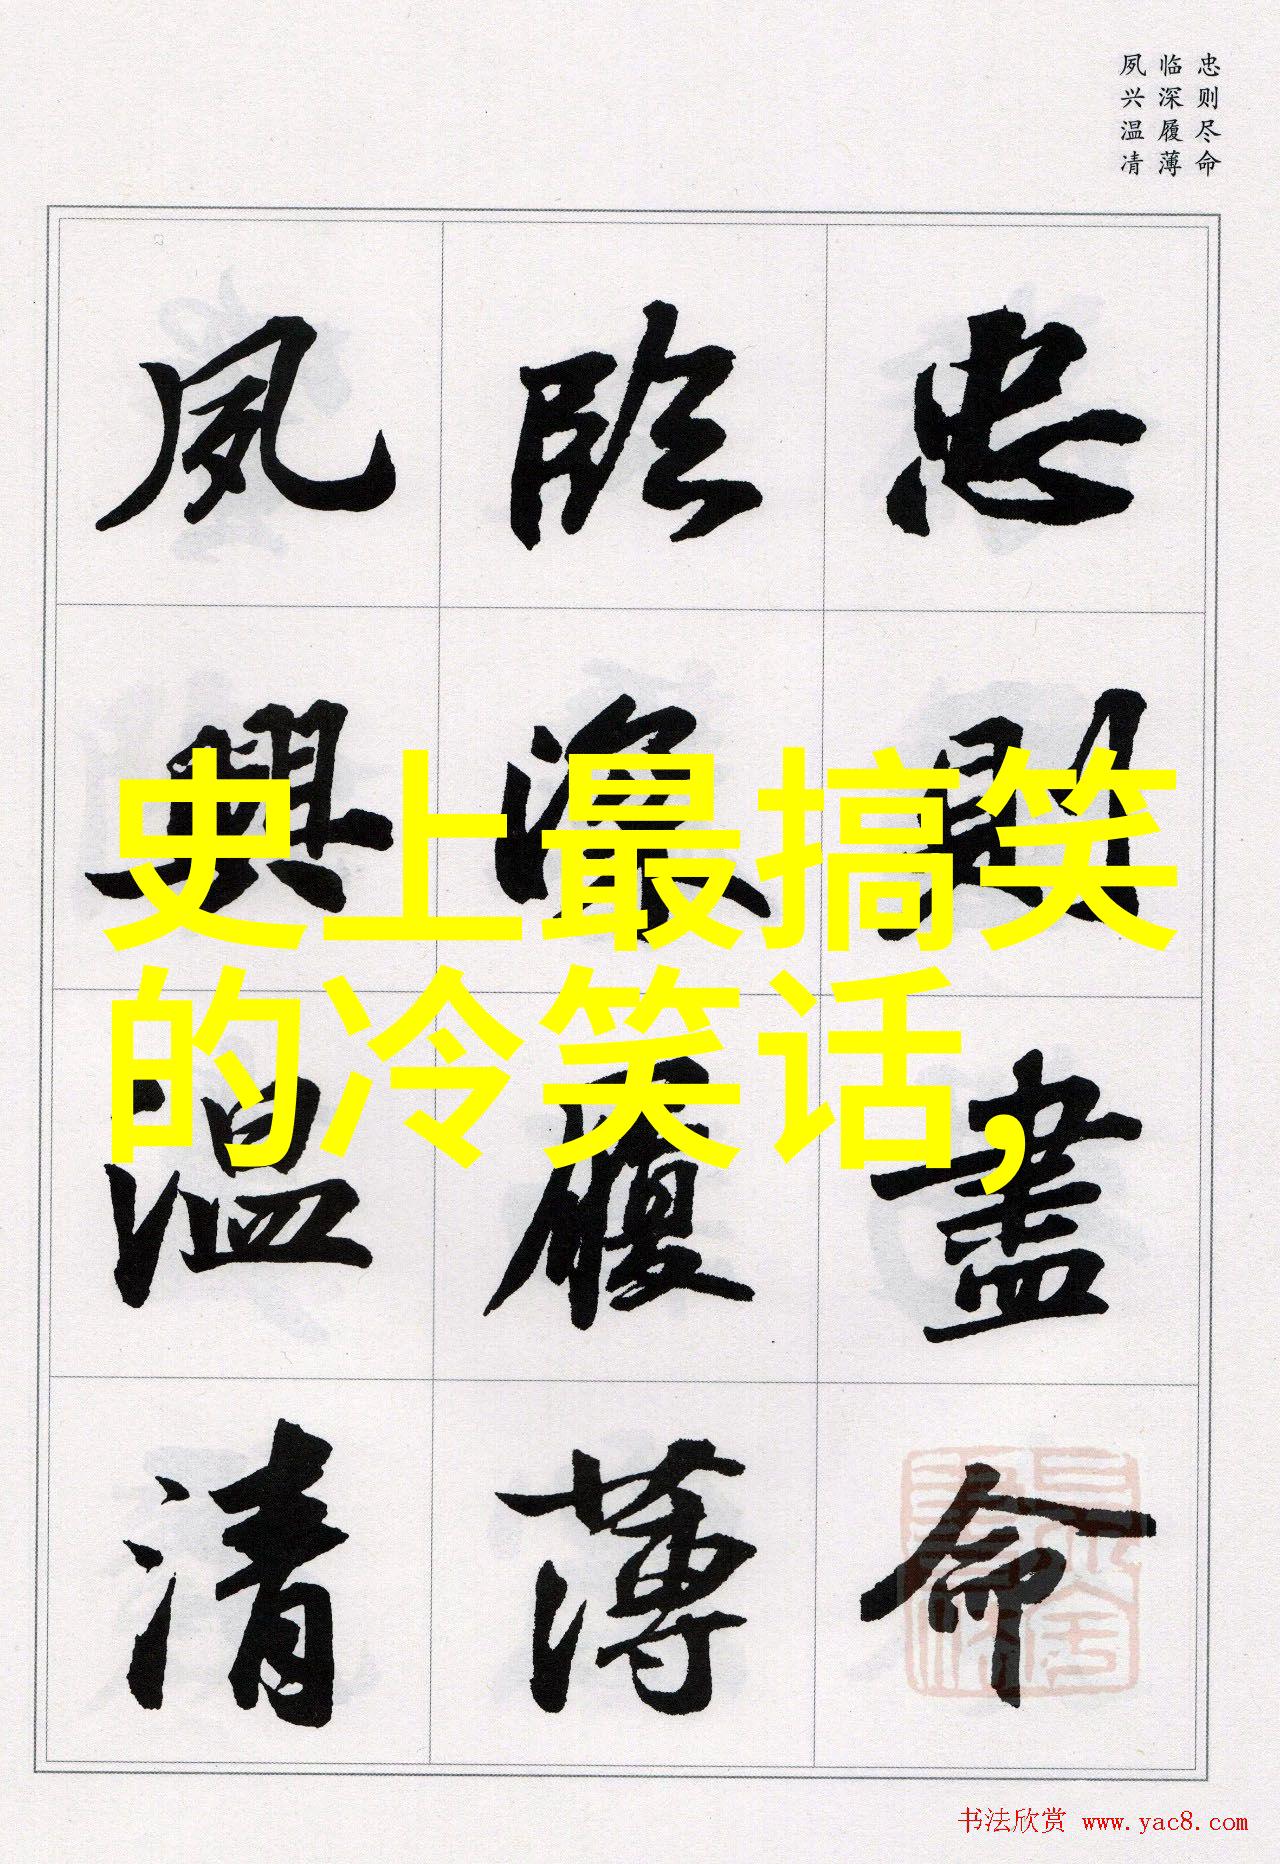 忠则尽命
临深履薄
夙兴温凊
忠則盡命
臨深履薄
夙興温凊
史上最搞笑
的冷笑话,
书法欣赏 www.yac8.com